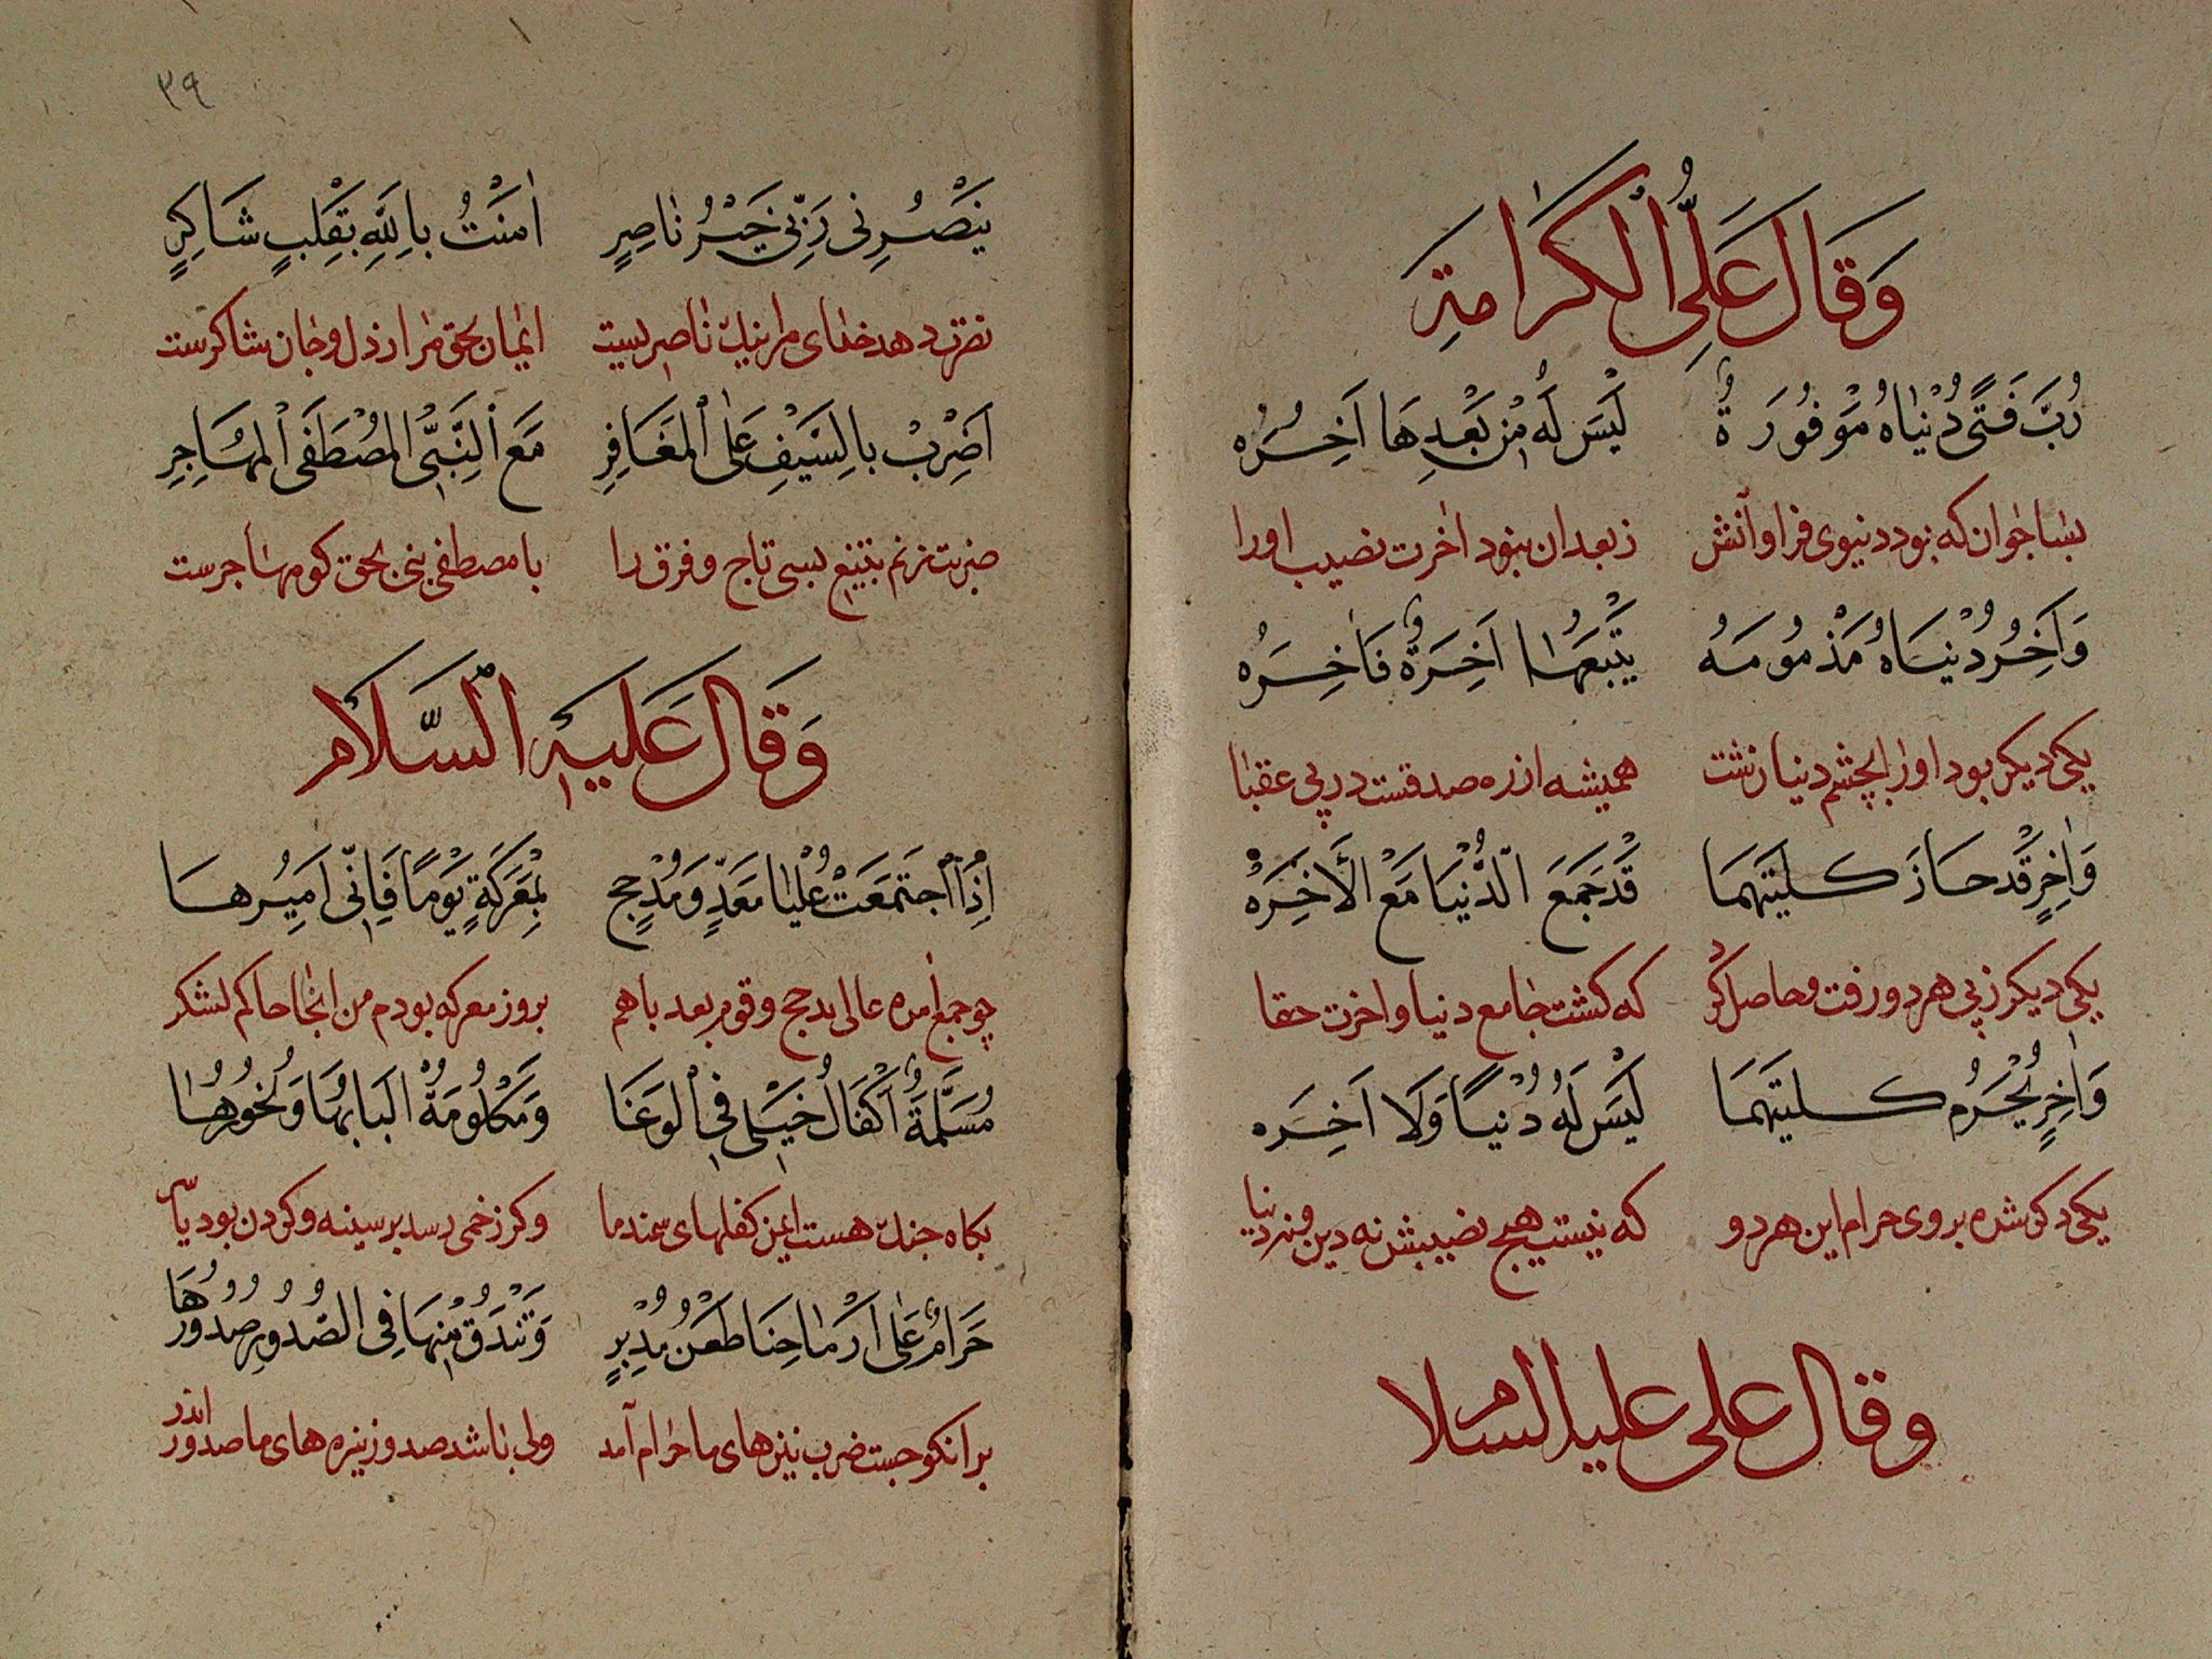 وَقَالَ عَلَىِّ الْكَرَامَةِ
رُبَّ فَتًى دُنْيَاهُ مَوْفُورَةٌ لَيْسَ لَهُ مِنْ بَعْدِهَا آخِرَه
بسا جوان که بود دنیوی فراوانش ز بعد ان نبود اخرت نصیب اورا
وَآخِرُ دُنْيَاهُ مَذْمُومَهُ يَتْبَعُهَا آخِرَةٌ فَاخِرَه
یکی دیکر بود اورا بچشم دنیا زشت همیشه از ره صدقست در پی عقبا
وَاٰخِرٍ قَدْ حَازَ كلتيهمَا قَدْ جَمَعَ الدُّنْيَا مَعَ الْأٰخِرَهْ
یکی دیکر ز پی هر دو رفت و حاصل کرد که کشت جامع دنیا و اخرت حقا
وَاٰخِرٍ يُحْرَمُ كلتيهمَا لَيْسَ لَهُ دُنْيًا وَلَا آخِرَه
یکی دکر شده بروی حرام این هر دو که نیست هیچ نصیبش نه دین و نه دنیا
وقال علی علیه السلام
٣٩
يَنْصُرُنِى رَبِّى خَيْرُ نَاصِرٍ اٰمَنْتُ بِاللَّهِ بِقَلْبٍ شَاكِرٍ
نصرت دهد خدای مرا نیک ناصریست ایمان بحق مرا ز دل و جان شاکرست
اَضْرِبْ بِالسَّيْفِ عَلَى الْمَغَافِرِ مَعَ النَّبِىِّ الْمُصْطَفَى الْمُهَاجِرِ
ضربت زنم بتیغ بسی تاج و فرق را با مصطفی نبی بحق کو مهاجرست
وَقَالَ عَلَيْهِ السَّلَامُ
اِذَا اجْتَمَعَتْ عُلْيَا مَعَدٍّ وَمُدْحِجٍ بِمَعْرَكَةٍ يَوْمًا فَاِنِّى اَمِيرُهَا
چو جمع امده عالی مدحج و قوم بعد باهم بروز معرکه بودم من انجا حاکم لشکر
مُسَلَّمَةٌ اَكْفَالُ خَيْلِى فِى الْوَغَا وَمَكْلُومَةٌ لَبَّاتُهَا وَنُحُورُهَا
بکاه جنک هست ایمن کفلهای سمند ما وکر زخمی رسد بر سینه و کردن بود یاسر
حَرَامٌ عَلَى اَرْمَاحِنَا طَعْنُ مُدْبِرٍ وَتَنْدَقُّ مِنْهَا فِى الصُّدُورِ صُدُورُهَا
برانکو جست ضرب نیزهای ما حرام آمد ولی باشد صدور نیزه های ما صدور اندر